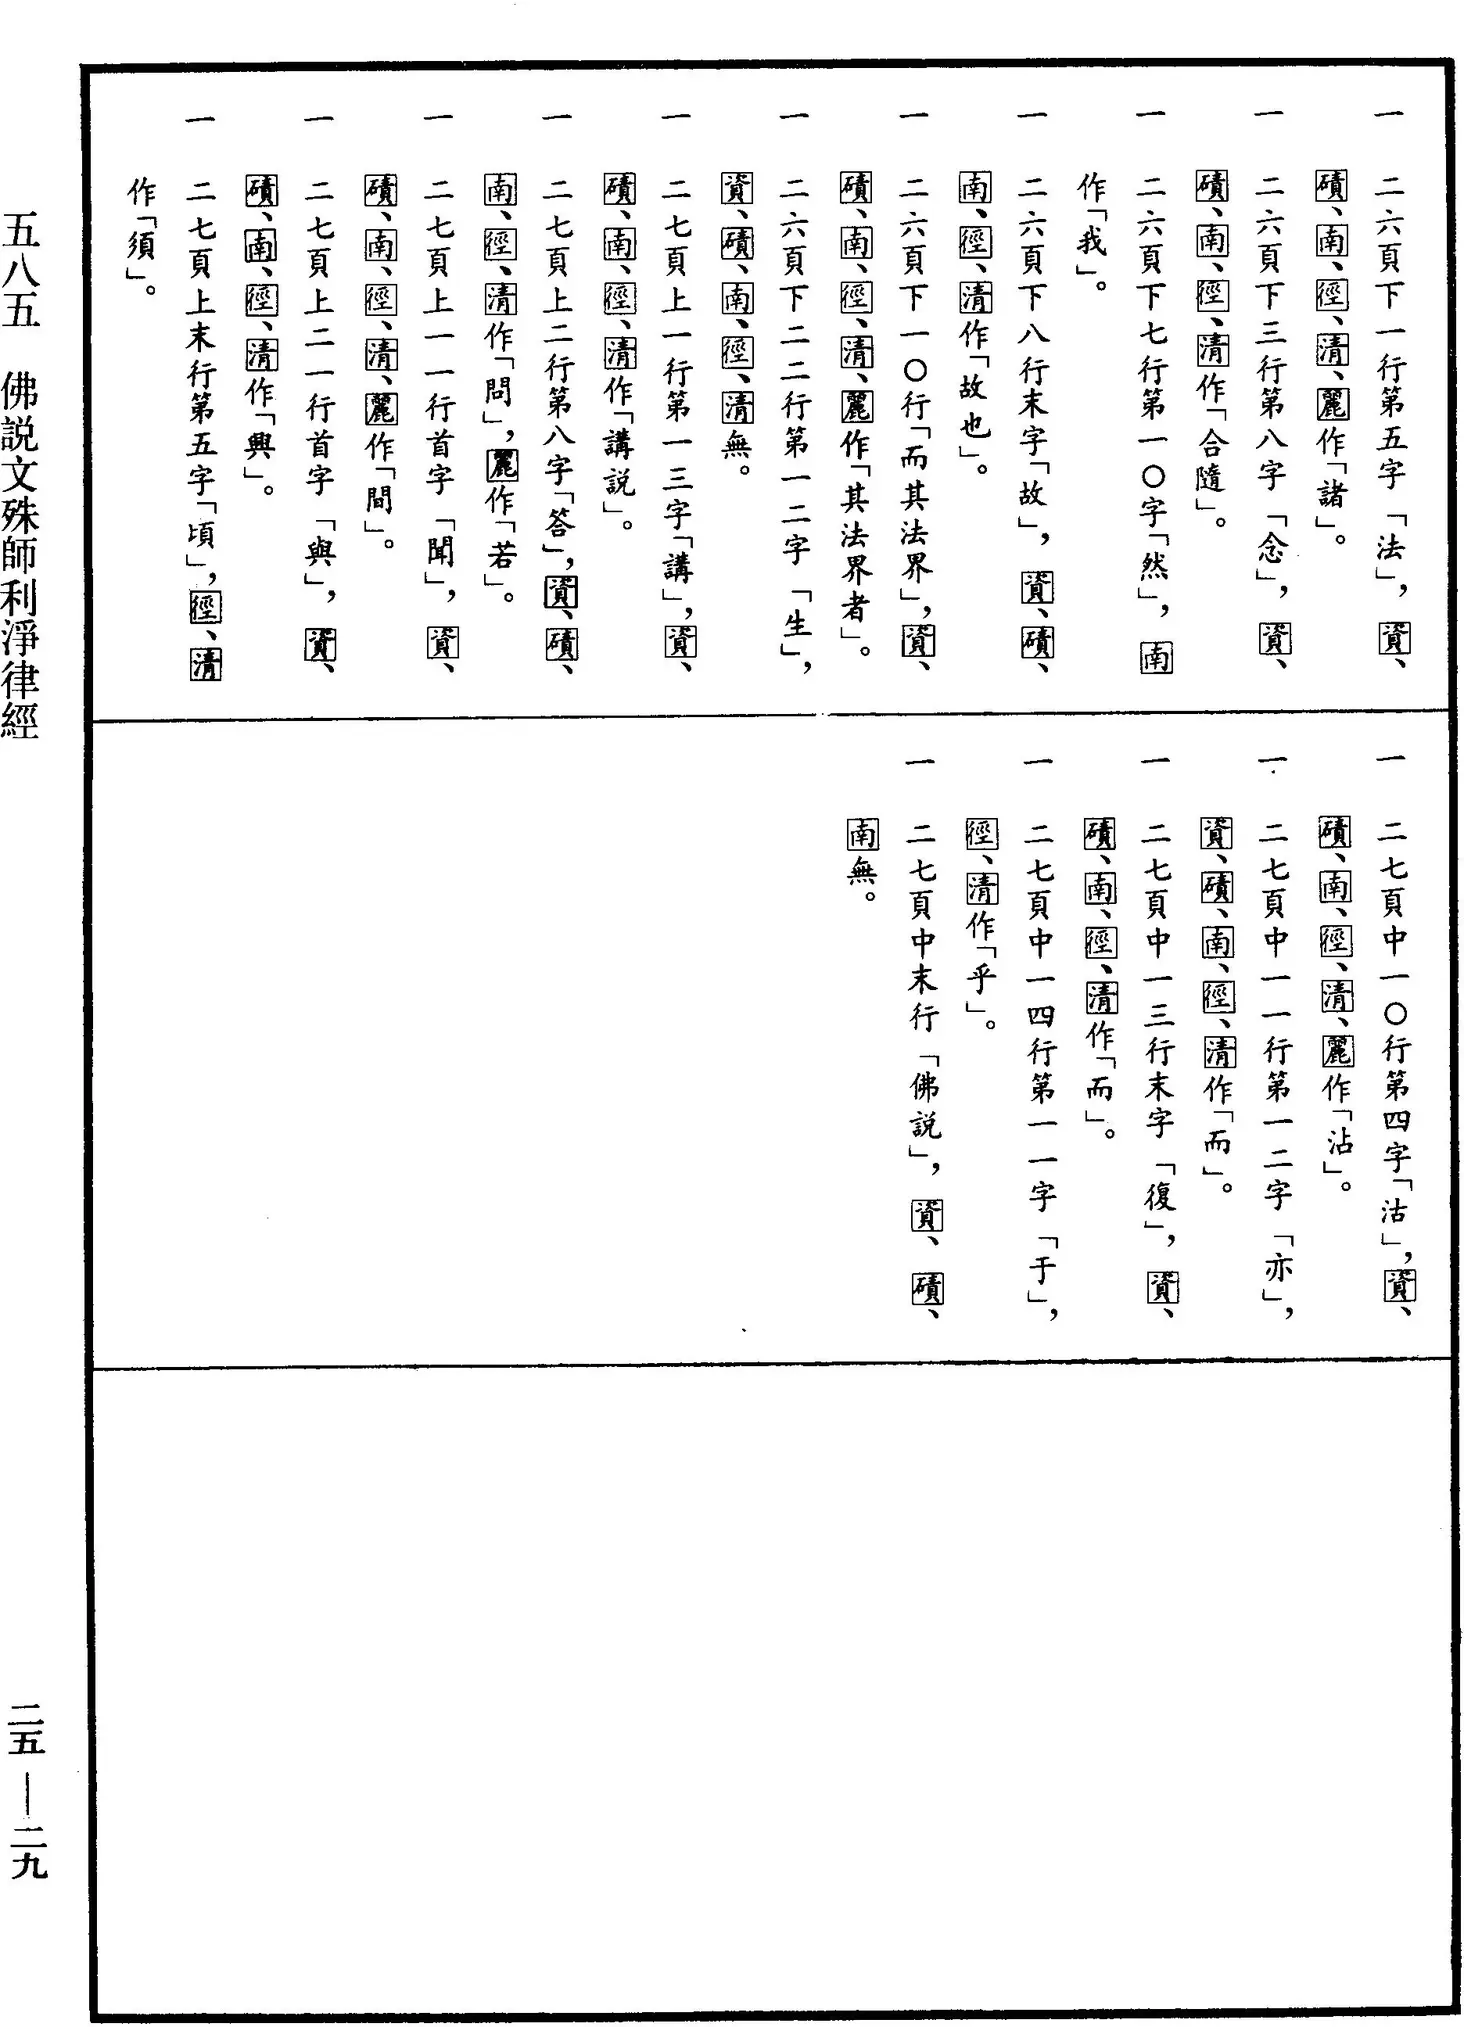 一 二六頁下一行第五字「法」，資、
磧、南、徑、清、麗作「諸」。
一 二六頁下三行第八字「念」，資、
磧、南、徑、清作「合隨」。
一 二六頁下七行第一〇字「然」，南
作「我」。
一 二六頁下八行末字「故」，資、磧、
南、徑、清作「故也」。
一 二六頁下一〇行「而其法界」，資、
磧、南、徑、清、麗作「其法界者」。
一 二六頁下二二行第一二字「生」，
資、磧、南、徑、清無。
一 二七頁上一行第一三字「講」，資、
磧、南、徑、清作「講説」。
一 二七頁上二行第八字「答」，資、磧、
南、徑、清作「問」，麗作「若」。
一 二七頁上一一行首字「聞」，資、
磧、南、徑、清、麗作「間」。
一 二七頁上二一行首字「與」，資、
磧、南、徑、清作「興」。
一 二七頁上末行第五字「頃」，徑、清
作「須」。
一 二七頁中一〇行第四字「沽」，資、
磧、南、徑、清、麗作「沾」。
一 二七頁中一一行第一二字「亦」，
資、磧、南、徑、清作「而」。
一 二七頁中一三行末字「復」，資、
磧、南、徑、清作「而」。
一 二七頁中一四行第一一字「于」，
徑、清作「乎」。
一 二七頁中末行「佛説」，資、磧、
南無。
五八五 佛説文殊師利淨律經
二五—二九